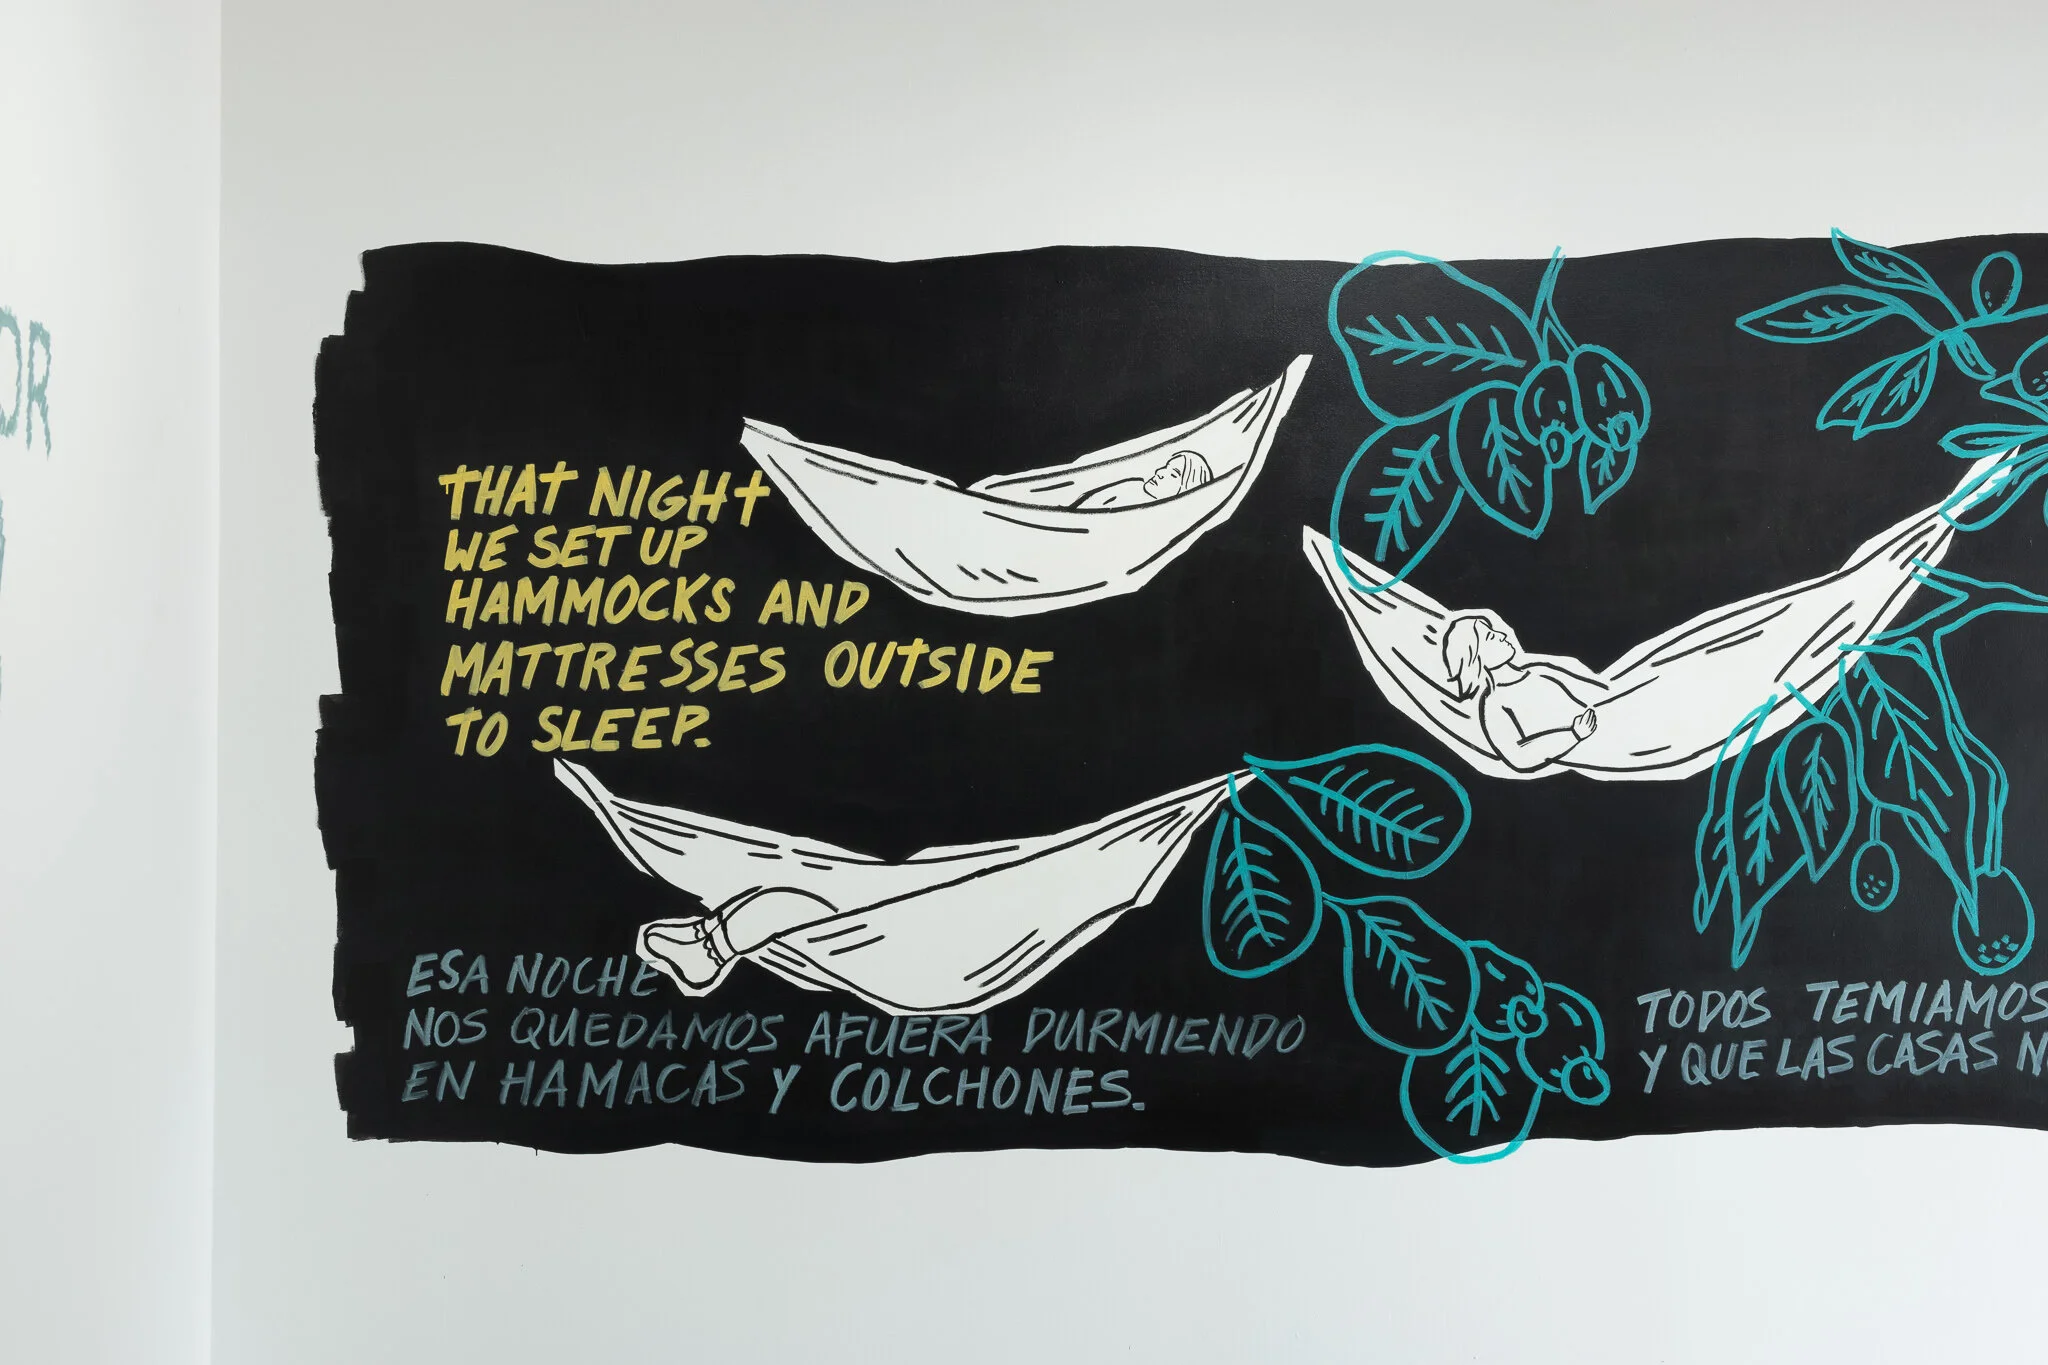 OR
THAT NIGHT
WE SET UP
HAMMOCKS AND
MATTRESSES OUTSIDE
TO SLEEP.
ESA NOCHE
NOS QUEDAMOS AFUERA DURMIENDO
EN HAMACAS Y COLCHONES.
TODOS TEMIAMOS
Y QUE LAS CASAS N